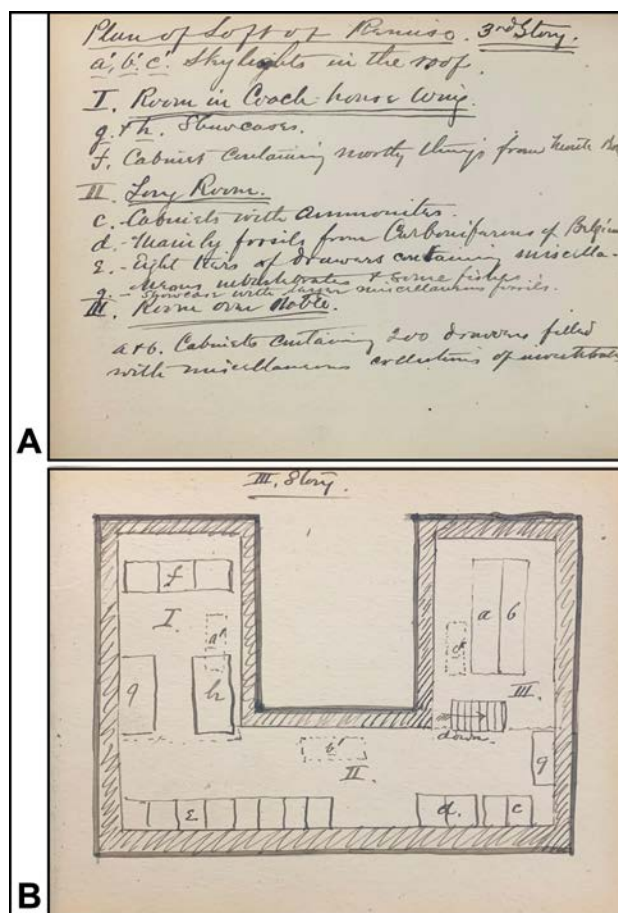 Plan of Loft of Remise. 3rd Story.
a', b', c'. Skylights in the roof.
I. Room in Coach-house Wing.
g. + h. Showcases.
f. Cabinet containing mostly things from Monte
II. Long Room.
c. - Cabinets with Ammonites.
d. - Mainly fossils from Carboniferous of Belgium
ε. - Eight tiers of drawers containing miscella-
neous invertebrates & some fishes.
g. - Showcase with larger miscellaneous fossils.
III. Room over Stable.
a + b. Cabinets containing 200 drawers filled
with miscellaneous collections of invertebrates
A
III. Story.
f
I.
a'
a b
c'
g
h
III.
down
b'
II.
g
ε
d. c
B